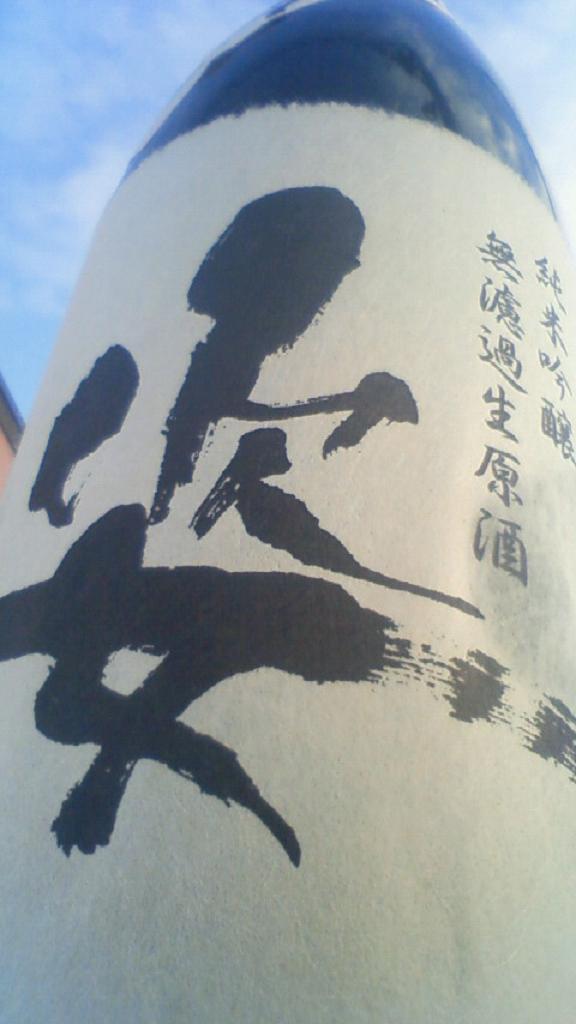 姿
純米吟醸
無濾過生原酒